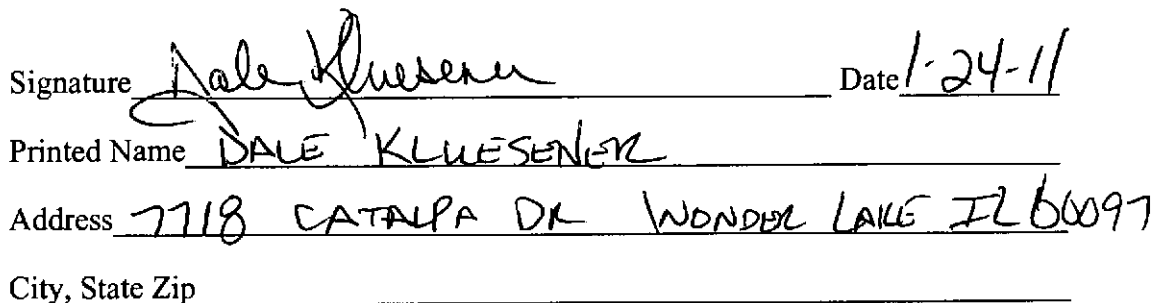 Signature Dale Kluesener Date 1-24-11
Printed Name DALE KLUESENER
Address 7718 CATALPA DR WONDER LAKE IL 60097
City, State Zip